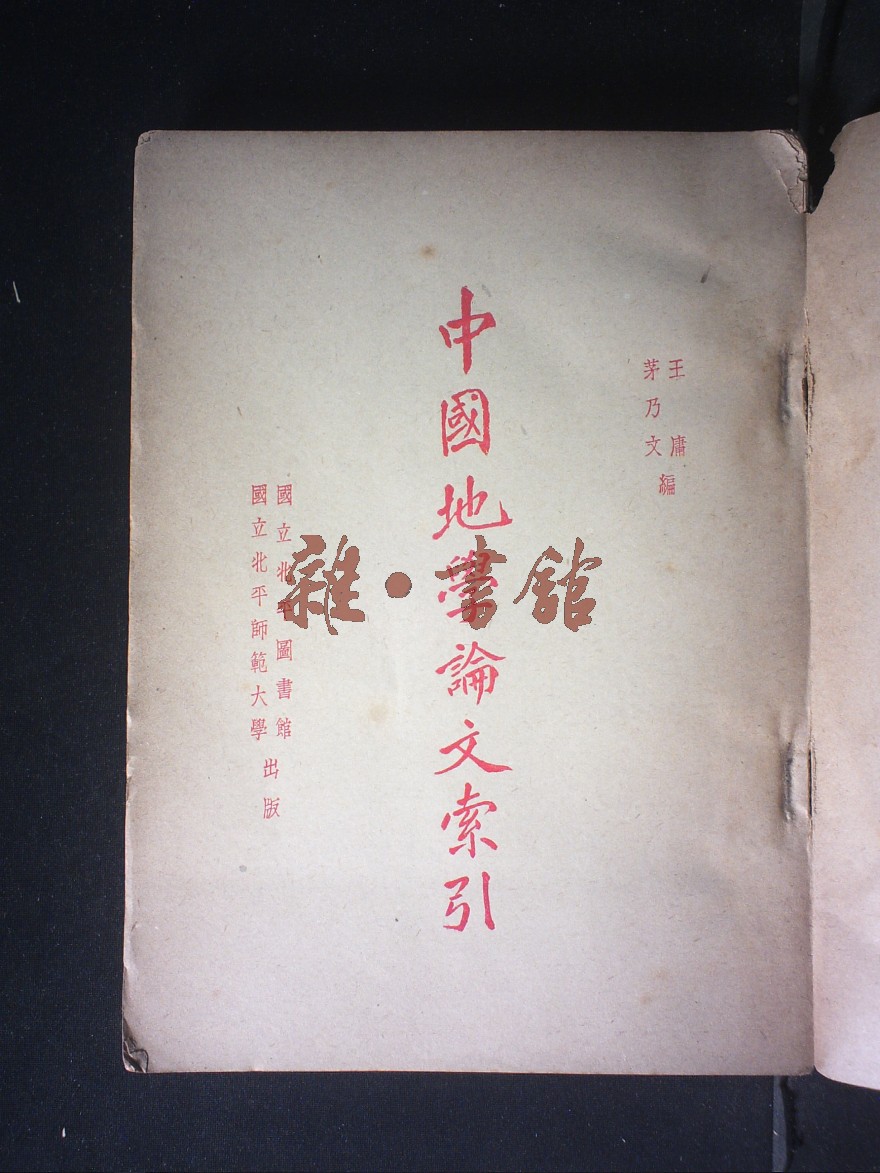 王庸
茅乃文
編
中國地學論文索引
國立北平圖書館
國立北平師範大學
出版
雜·書館